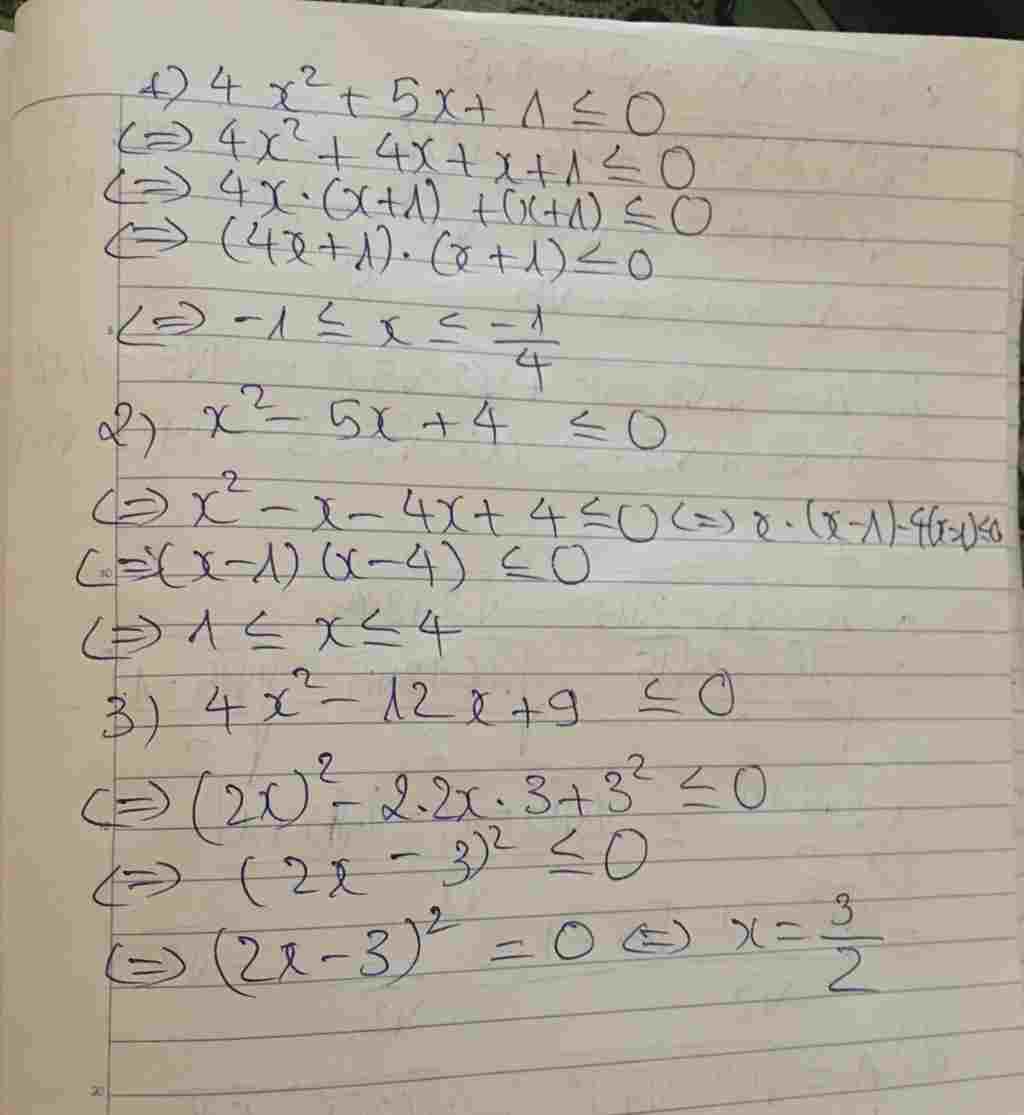 1) 4x² + 5x + 1 ≤ 0
<=> 4x² + 4x + x + 1 ≤ 0
<=> 4x . (x+1) + (x+1) ≤ 0
<=> (4x+1) . (x+1) ≤ 0
<=> -1 ≤ x ≤ -1/4
2) x² - 5x + 4 ≤ 0
<=> x² - x - 4x + 4 ≤ 0 <=> x . (x-1) - 4(x-1) ≤ 0
<=> (x-1) (x-4) ≤ 0
<=> 1 ≤ x ≤ 4
3) 4x² - 12x + 9 ≤ 0
<=> (2x)² - 2.2x.3 + 3² ≤ 0
<=> (2x - 3)² ≤ 0
<=> (2x - 3)² = 0 <=> x = 3/2